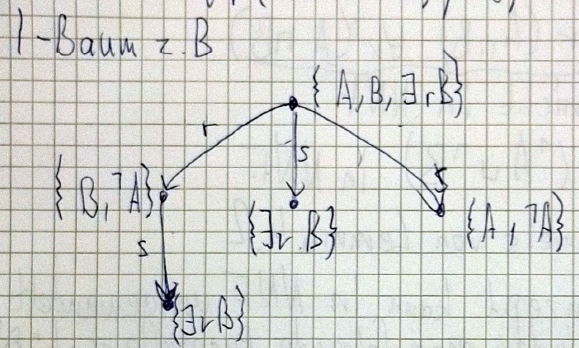 I-Baum z.B
{A, B, ∃rB}
r
s
s
{B, ¬A}
{∃r.B}
{A, ¬A}
s
{∃rB}